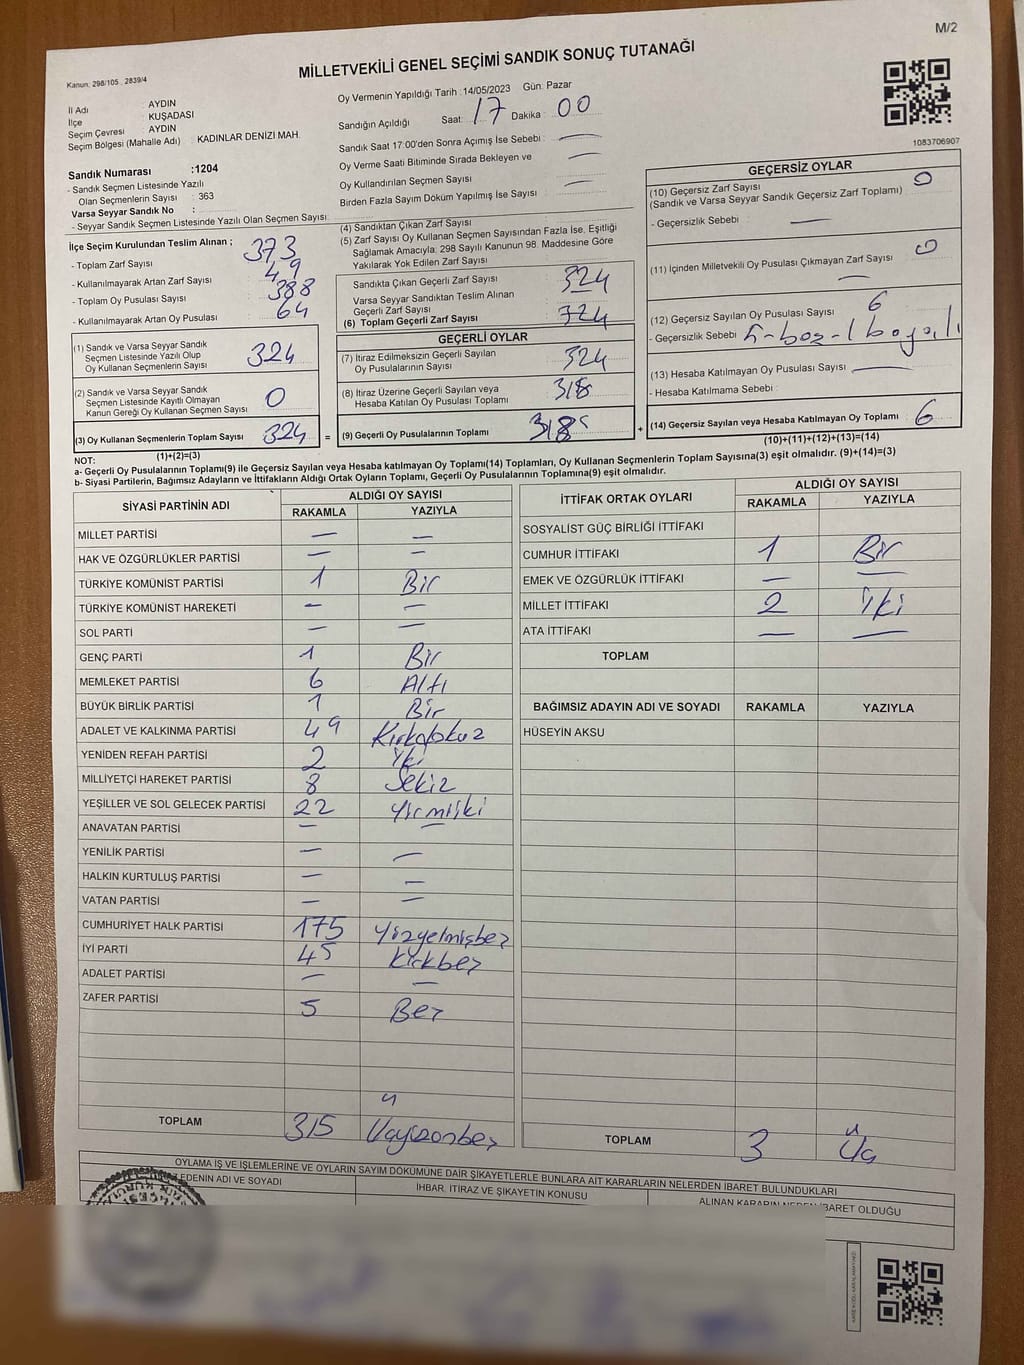 M/2
Kanun: 298/105 , 2839/4
MİLLETVEKİLİ GENEL SEÇİMİ SANDIK SONUÇ TUTANAĞI
İl Adı : AYDIN
İlçe : KUŞADASI
Seçim Çevresi : AYDIN
Seçim Bölgesi (Mahalle Adı) : KADINLAR DENİZİ MAH.
Oy Vermenin Yapıldığı Tarih :14/05/2023 Gün: Pazar
Sandığın Açıldığı Saat: 17 Dakika : 00
Sandık Saat 17:00'den Sonra Açımış İse Sebebi : —
Oy Verme Saati Bitiminde Sırada Bekleyen ve
Oy Kullandırılan Seçmen Sayısı : —
Birden Fazla Sayım Döküm Yapılmış İse Sayısı : —
1083706907
Sandık Numarası :1204
- Sandık Seçmen Listesinde Yazılı
Olan Seçmenlerin Sayısı : 363
Varsa Seyyar Sandık No :
- Seyyar Sandık Seçmen Listesinde Yazılı Olan Seçmen Sayısı:
İlçe Seçim Kurulundan Teslim Alınan ;
- Toplam Zarf Sayısı : 373
- Kullanılmayarak Artan Zarf Sayısı : 49
- Toplam Oy Pusulası Sayısı : 388
- Kullanılmayarak Artan Oy Pusulası : 64
(1) Sandık ve Varsa Seyyar Sandık
Seçmen Listesinde Yazılı Olup
Oy Kullanan Seçmenlerin Sayısı : 324
(2) Sandık ve Varsa Seyyar Sandık
Seçmen Listesinde Kayıtlı Olmayan
Kanun Gereği Oy Kullanan Seçmen Sayısı : 0
(3) Oy Kullanan Seçmenlerin Toplam Sayısı : 324
(1)+(2)=(3)
(4) Sandıktan Çıkan Zarf Sayısı :
(5) Zarf Sayısı Oy Kullanan Seçmen Sayısından Fazla İse, Eşitliği
Sağlamak Amacıyla; 298 Sayılı Kanunun 98. Maddesine Göre
Yakılarak Yok Edilen Zarf Sayısı :
Sandıkta Çıkan Geçerli Zarf Sayısı : 324
Varsa Seyyar Sandıktan Teslim Alınan
Geçerli Zarf Sayısı :
(6) Toplam Geçerli Zarf Sayısı : 324
GEÇERLİ OYLAR
(7) İtiraz Edilmeksizin Geçerli Sayılan
Oy Pusulalarının Sayısı : 324
(8) İtiraz Üzerine Geçerli Sayılan veya
Hesaba Katılan Oy Pusulası Toplamı : 318
= (9) Geçerli Oy Pusulalarının Toplamı : 318 +
GEÇERSİZ OYLAR
(10) Geçersiz Zarf Sayısı : 0
(Sandık ve Varsa Seyyar Sandık Geçersiz Zarf Toplamı)
- Geçersizlik Sebebi : —
(11) İçinden Milletvekili Oy Pusulası Çıkmayan Zarf Sayısı : 0
—
(12) Geçersiz Sayılan Oy Pusulası Sayısı : 6
- Geçersizlik Sebebi :
(13) Hesaba Katılmayan Oy Pusulası Sayısı : —
- Hesaba Katılmama Sebebi :
(14) Geçersiz Sayılan veya Hesaba Katılmayan Oy Toplamı : 6
(10)+(11)+(12)+(13)=(14)
NOT:
a- Geçerli Oy Pusulalarının Toplamı(9) ile Geçersiz Sayılan veya Hesaba katılmayan Oy Toplamı(14) Toplamları, Oy Kullanan Seçmenlerin Toplam Sayısına(3) eşit olmalıdır. (9)+(14)=(3)
b- Siyasi Partilerin, Bağımsız Adayların ve İttifakların Aldığı Ortak Oyların Toplamı, Geçerli Oy Pusulalarının Toplamına(9) eşit olmalıdır.
SİYASİ PARTİNİN ADI ALDIĞI OY SAYISI
RAKAMLA YAZIYLA
MİLLET PARTİSİ — —
HAK VE ÖZGÜRLÜKLER PARTİSİ — —
TÜRKİYE KOMÜNİST PARTİSİ 1 Bir
TÜRKİYE KOMÜNİST HAREKETİ — —
SOL PARTİ — —
GENÇ PARTİ 1 Bir
MEMLEKET PARTİSİ 6 Altı
BÜYÜK BİRLİK PARTİSİ 1 Bir
ADALET VE KALKINMA PARTİSİ 49 Kırkdokuz
YENİDEN REFAH PARTİSİ 2 İki
MİLLİYETÇİ HAREKET PARTİSİ 8 Sekiz
YEŞİLLER VE SOL GELECEK PARTİSİ 22 Yirmiiki
ANAVATAN PARTİSİ — —
YENİLİK PARTİSİ — —
HALKIN KURTULUŞ PARTİSİ — —
VATAN PARTİSİ — —
CUMHURİYET HALK PARTİSİ 175 Yüzyetmişbeş
İYİ PARTİ 45 Kırkbeş
ADALET PARTİSİ — —
ZAFER PARTİSİ 5 Beş
TOPLAM 315 Üçyüzonbeş
İTTİFAK ORTAK OYLARI ALDIĞI OY SAYISI
RAKAMLA YAZIYLA
SOSYALİST GÜÇ BİRLİĞİ İTTİFAKI
CUMHUR İTTİFAKI 1 Bir
EMEK VE ÖZGÜRLÜK İTTİFAKI — —
MİLLET İTTİFAKI 2 İki
ATA İTTİFAKI — —
TOPLAM
BAĞIMSIZ ADAYIN ADI VE SOYADI RAKAMLA YAZIYLA
HÜSEYİN AKSU
TOPLAM 3 Üç
OYLAMA İŞ VE İŞLEMLERİNE VE OYLARIN SAYIM DÖKÜMÜNE DAİR ŞİKAYETLERLE BUNLARA AİT KARARLARIN NELERDEN İBARET BULUNDUKLARI
EDENİN ADI VE SOYADI
İHBAR, İTİRAZ VE ŞİKAYETİN KONUSU
ALINAN KARARIN NEDEN İBARET OLDUĞU